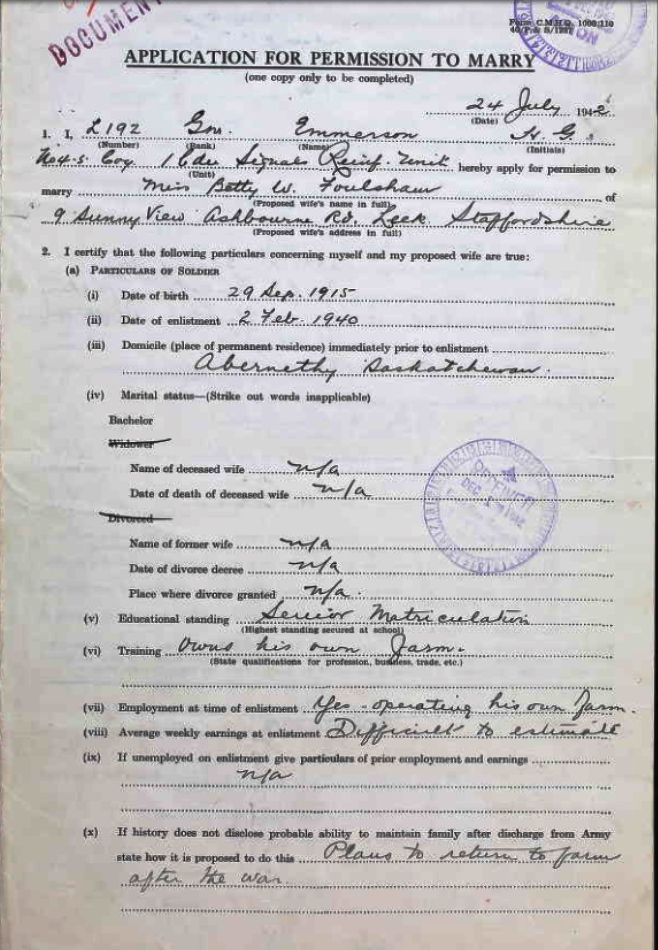 DOCUMENT
Form C.M.H.Q. 1000/110
APPLICATION FOR PERMISSION TO MARRY
(one copy only to be completed)
24 July 1942
(Date)
1. I, L192 Gnr. Emmerson H. G.
(Number) (Rank) (Name) (Initials)
No 4-S Coy 1 Cdn Signals Reinf. Unit hereby apply for permission to
(Unit)
marry Miss Betty W. Foulsham of
(Proposed wife's name in full)
9 Sunny View Ashbourne Rd, Leek Staffordshire
(Proposed wife's address in full)
2. I certify that the following particulars concerning myself and my proposed wife are true:
(a) PARTICULARS OF SOLDIER
(i) Date of birth 29 Sep. 1915
(ii) Date of enlistment 2 Feb. 1940
(iii) Domicile (place of permanent residence) immediately prior to enlistment
Abernethy Saskatchewan.
(iv) Marital status—(Strike out words inapplicable)
Bachelor
Widower
Name of deceased wife n/a
Date of death of deceased wife n/a
Divorced
Name of former wife n/a
Date of divorce decree n/a
Place where divorce granted n/a.
(v) Educational standing Senior Matriculation
(Highest standing secured at school)
(vi) Training Owns his own farm.
(State qualifications for profession, business, trade, etc.)
(vii) Employment at time of enlistment Yes - operating his own farm.
(viii) Average weekly earnings at enlistment Difficult to estimate
(ix) If unemployed on enlistment give particulars of prior employment and earnings
n/a
(x) If history does not disclose probable ability to maintain family after discharge from Army
state how it is proposed to do this Plans to return to farm
after the war.